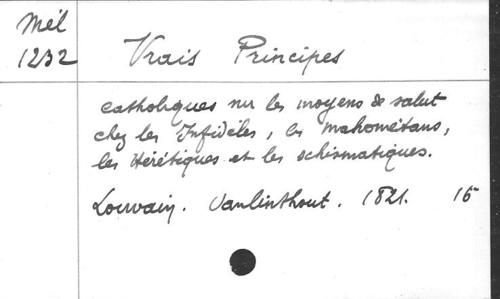 Mél
1232
Vrais Principes
catholiques sur les moyens de salut
chez les Infidèles, les mahométans,
les Hérétiques et les schismatiques.
Louvain. Vanlinthout. 1821. 15